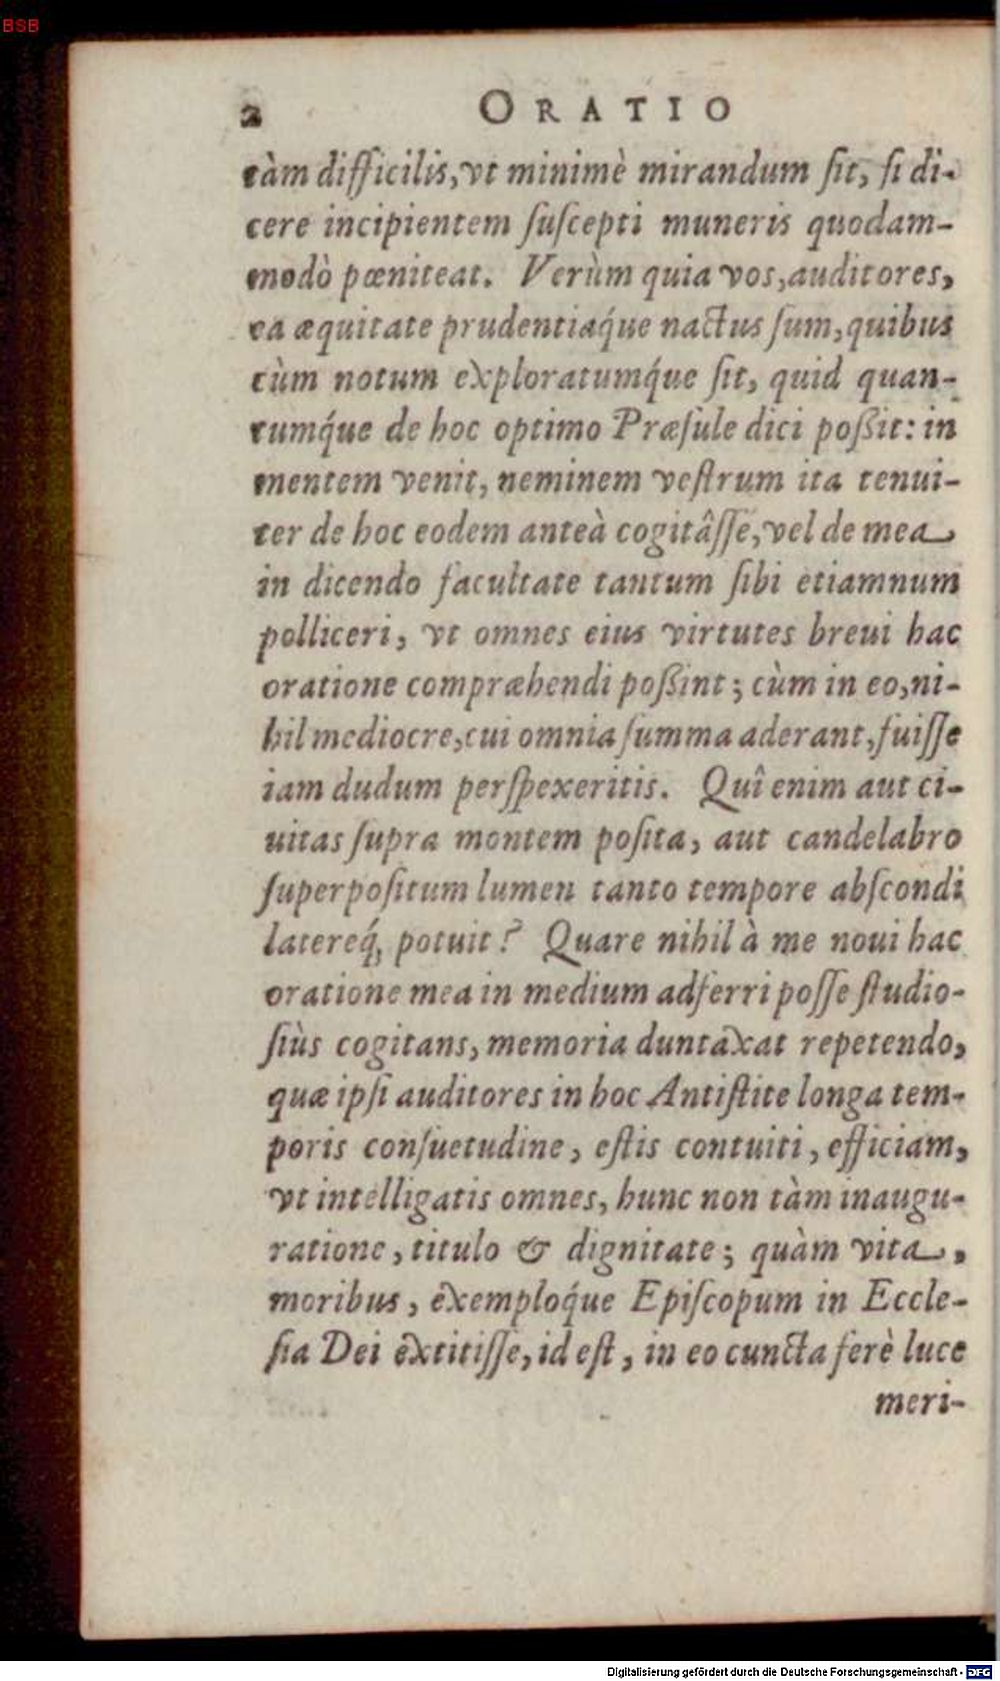 BSB
2 ORATIO
tàm difficilis, vt minimè mirandum ſit, ſi di-
cere incipientem ſuſcepti muneris quodam-
modò pœniteat. Verùm quia vos, auditores,
ea æquitate prudentiaq́ue nactus ſum, quibus
cùm notum exploratumq́ue ſit, quid quan-
tumq́ue de hoc optimo Præſule dici poßit: in
mentem venit, neminem veſtrum ita tenui-
ter de hoc eodem anteà cogitâſſe, vel de mea
in dicendo facultate tantum ſibi etiamnum
polliceri, vt omnes eius virtutes breui hac
oratione compræhendi poßint; cùm in eo, ni-
hil mediocre, cui omnia ſumma aderant, fuiſſe
iam dudum perſpexeritis. Quî enim aut ci-
uitas ſupra montem poſita, aut candelabro
ſuperpoſitum lumen tanto tempore abſcondi
latereq́; potuit? Quare nihil à me noui hac
oratione mea in medium adferri poſſe ſtudio-
ſiùs cogitans, memoria duntaxat repetendo,
quæ ipſi auditores in hoc Antiſtite longa tem-
poris conſuetudine, eſtis contuiti, efficiam,
vt intelligatis omnes, hunc non tàm inaugu-
ratione, titulo & dignitate; quàm vita,
moribus, exemploq́ue Epiſcopum in Eccle-
ſia Dei extitiſſe, id eſt, in eo cuncta ferè luce
meri-
Digitalisierung gefördert durch die Deutsche Forschungsgemeinschaft - DFG